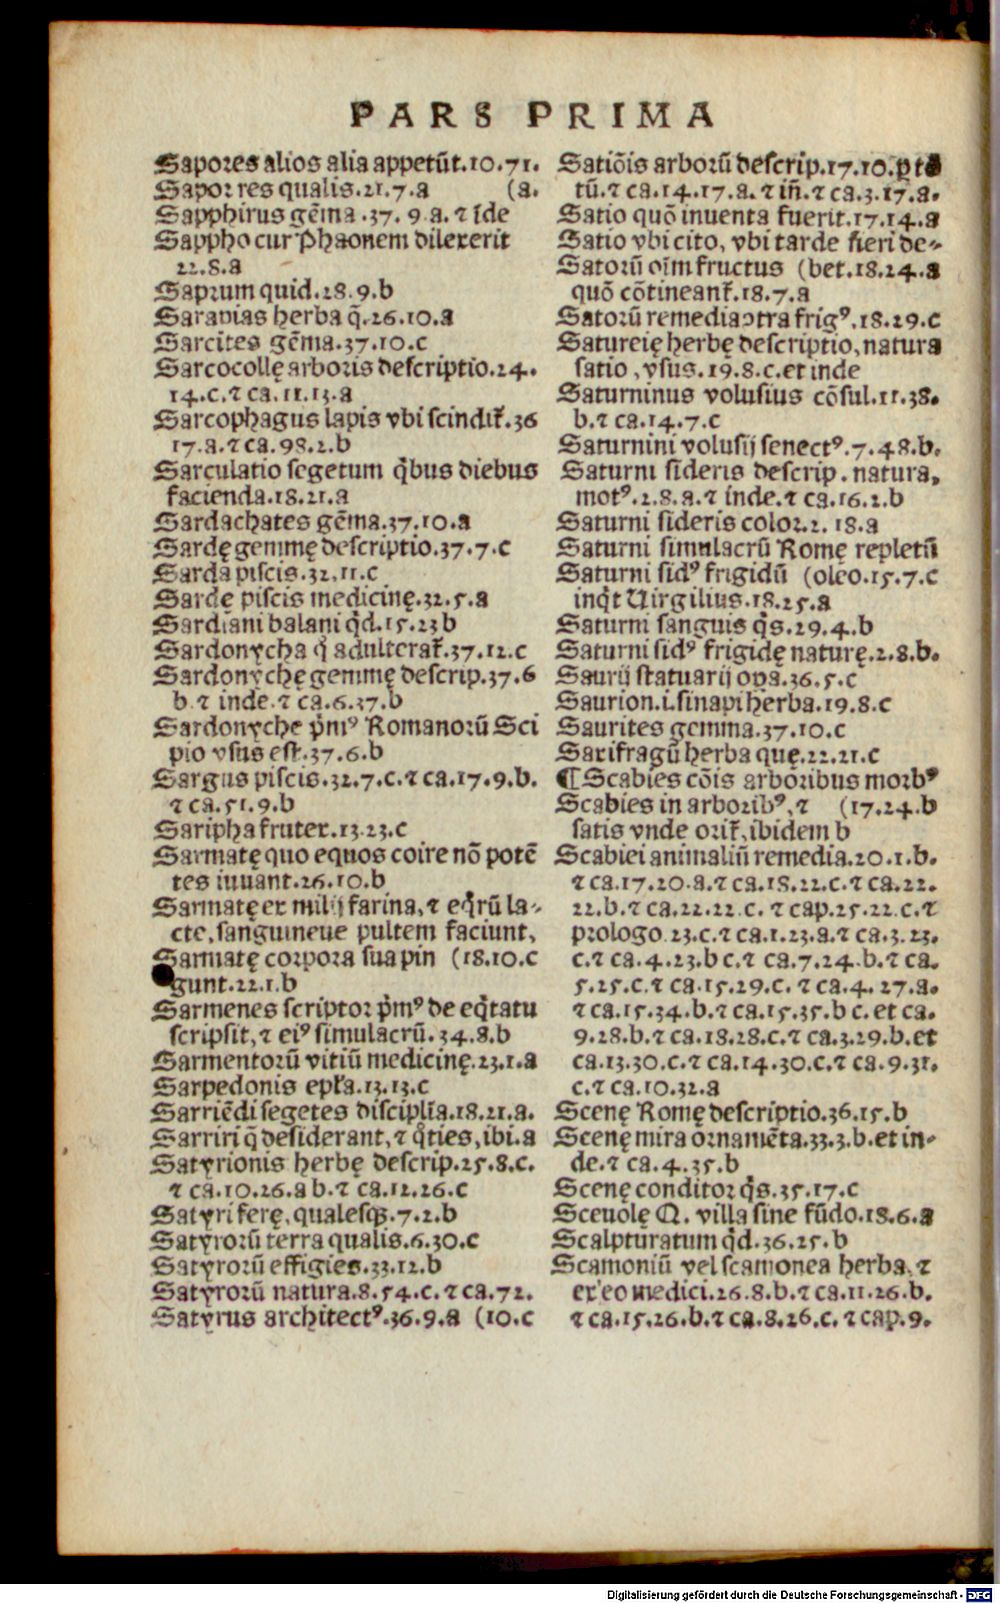 PARS PRIMA
Sapores alios alia appetūt.10.71.
Sapor res qualis.21.7.a (a.
Sapphirus gēma.37.9.a.⁊ īde
Sappho cur Phaonem dilexerit
22.8.a
Saprum quid.28.9.b
Sarapias herba q̄.26.10.a
Sarcites gēma.37.10.c
Sarcocollę arboris descriptio.24.
14.c.⁊ ca.11.13.a
Sarcophagus lapis vbi scindit̃.36
17.a.⁊ ca.98.2.b
Sarculatio segetum q̇bus diebus
facienda.18.21.a
Sardachates gēma.37.10.a
Sardę gemmę descriptio.37.7.c
Sarda piscis.32.11.c
Sardę piscis medicinę.32.5.a
Sardiani balani q̇d.15.23 b
Sardonycha q̊ adulterat̃.37.12.c
Sardonychę gemmę descrip.37.6
b.⁊ inde.⁊ ca.6.37.b
Sardonyche p̄mꝰ Romanorū Sci
pio vsus est.37.6.b
Sargus piscis.32.7.c.⁊ ca.17.9.b.
⁊ ca.51.9.b
Saripha frutex.13.23.c
Sarmatę quo equos coire nō potē
tes iuuant.26.10.b
Sarmatę ex milij farina,⁊ eq̇rū la-
cte,sanguineue pultem faciunt,
Sarmatę corpora sua pin (18.10.c
gunt.22.1.b
Sarmenes scriptor p̄mꝰ de eq̇tatu
scripsit,⁊ eiꝰ simulacrū.34.8.b
Sarmentorū vitiū medicinę.23.1.a
Sarpedonis epl̄a.13.13.c
Sarriēdi segetes displīa.18.21.a.
Sarriri q̄ desiderant,⁊ q̊ties,ibi.a
Satyrionis herbę descrip.25.8.c.
⁊ ca.10.26.a b.⁊ ca.12.26.c
Satyri ferę,qualesqꝫ.7.2.b
Satyrorū terra qualis.6.30.c
Satyrorū effigies.33.12.b
Satyrorū natura.8.54.c.⁊ ca.72.
Satyrus architectꝰ.36.9.a (10.c
Satiōis arborū descrip.17.10.ꝑ to
tū.⁊ ca.14.17.a.⁊ iñ.⁊ ca.3.17.a.
Satio quō inuenta fuerit.17.14.a
Satio vbi cito, vbi tarde fieri de-
Satorū oīm fructus (bet.18.24.a
quō cōtineant̃.18.7.a
Satorū remedia ꝯtra frigꝰ.18.29.c
Satureię herbę descriptio,natura
satio,vsus.19.8.c.et inde
Saturninus volusius cōsul.11.38.
b.⁊ ca.14.7.c
Saturnini volusij senectꝰ.7.48.b.
Saturni sideris descrip.natura,
motꝰ.2.8.a.⁊ inde.⁊ ca.16.2.b
Saturni sideris color.2.18.a
Saturni simulacrū Romę repletū
Saturni sidꝰ frigidū (oleo.15.7.c
inq̇t Uirgilius.18.25.a
Saturni sanguis q̇s.29.4.b
Saturni sidꝰ frigidę naturę.2.8.b.
Saurij statuarij opa.36.5.c
Saurion.i.sinapi herba.19.8.c
Saurites gemma.37.10.c
Saxifragū herba quę.22.21.c
¶Scabies cōis arboribus morbꝰ
Scabies in arboribꝰ,⁊ (17.24.b
satis vnde orit̃,ibidem b
Scabiei animaliū remedia.20.1.b.
⁊ ca.17.20.a.⁊ ca.18.22.c.⁊ ca.22.
22.b.⁊ ca.22.22.c.⁊ cap.25.22.c.⁊
prologo.23.c.⁊ ca.1.23.a.⁊ ca.3.23.
c.⁊ ca.4.23.b c.⁊ ca.7.24.b.⁊ ca.
5.25.c.⁊ ca.15.29.c.⁊ ca.4.27.a.
⁊ ca.15.34.b.⁊ ca.15.35.b c.et ca.
9.28.b.⁊ ca.18.28.c.⁊ ca.3.29.b.et
ca.13.30.c.⁊ ca.14.30.c.⁊ ca.9.31.
c.⁊ ca.10.32.a
Scenę Romę descriptio.36.15.b
Scenę mira ornamēta.33.3.b.et in-
de.⁊ ca.4.35.b
Scenę conditor q̇s.35.17.c
Sceuolę Q. villa sine fūdo.18.6.a
Scalpturatum q̇d.36.25.b
Scamoniū vel scamonea herba,⁊
ex eo medici.26.8.b.⁊ ca.11.26.b.
⁊ ca.15.26.b.⁊ ca.8.26.c.⁊ cap.9.
Digitalisierung gefördert durch die Deutsche Forschungsgemeinschaft - DFG